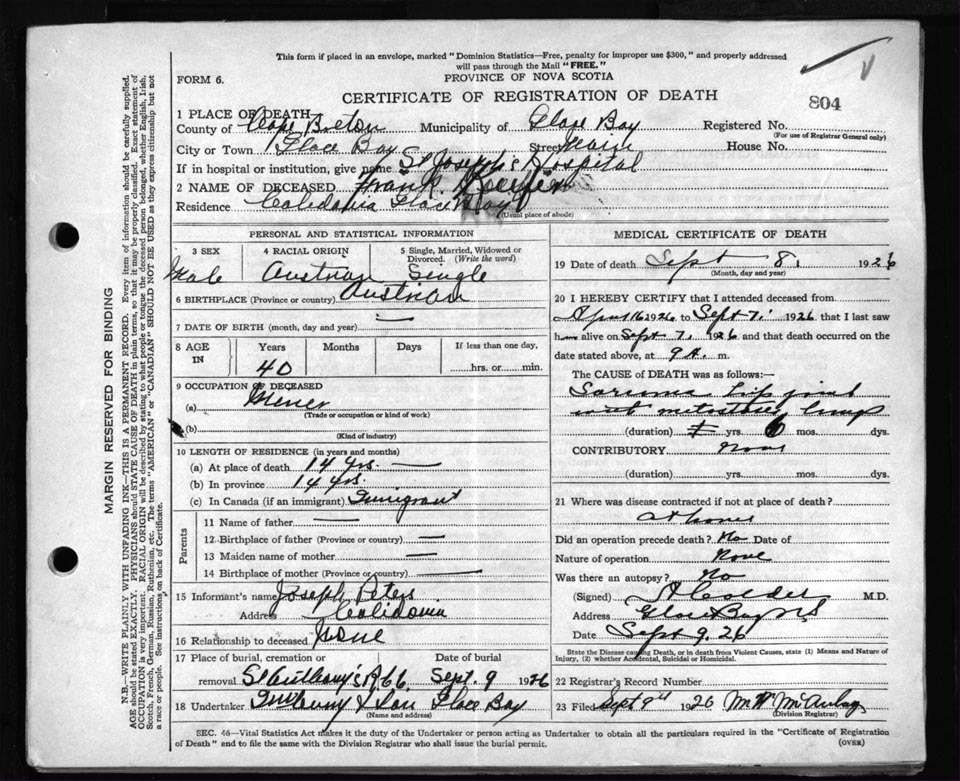 This form if placed in an envelope, marked "Dominion Statistics—Free, penalty for improper use $300," and properly addressed
will pass through the Mail "FREE."
FORM 6.
PROVINCE OF NOVA SCOTIA
CERTIFICATE OF REGISTRATION OF DEATH
804
1 PLACE OF DEATH
County of Cape Breton Municipality of Glace Bay Registered No.
(For use of Registrar General only)
City or Town Glace Bay Street House No.
If in hospital or institution, give name St Joseph's Hospital
2 NAME OF DECEASED Frank
Residence Caledonia Glace Bay
(Usual place of abode)
PERSONAL AND STATISTICAL INFORMATION
3 SEX 4 RACIAL ORIGIN 5 Single, Married, Widowed or
Divorced. (Write the word)
Male Austrian Single
6 BIRTHPLACE (Province or country) Austrian
7 DATE OF BIRTH (month, day and year) —
8 AGE IN Years Months Days If less than one day,
40 hrs. or min.
9 OCCUPATION OF DECEASED
(a) Miner
(Trade or occupation or kind of work)
(b)
(Kind of industry)
10 LENGTH OF RESIDENCE (in years and months)
(a) At place of death 14 yrs. —
(b) In province 14 yrs.
(c) In Canada (if an immigrant) Immigrant
Parents
11 Name of father —
12 Birthplace of father (Province or country) —
13 Maiden name of mother —
14 Birthplace of mother (Province or country) —
15 Informant's name Joseph Peters
Address Calidonia
16 Relationship to deceased None
17 Place of burial, cremation or Date of burial
removal St Anthony's Sept. 9 1926
18 Undertaker & Son Glace Bay
(Name and address)
MEDICAL CERTIFICATE OF DEATH
19 Date of death Sept 8, 1926
(Month, day and year)
20 I HEREBY CERTIFY that I attended deceased from
April 16 1926 to Sept 7, 1926 that I last saw
him alive on Sept 7, 1926 and that death occurred on the
date stated above, at 9 A. m.
The CAUSE of DEATH was as follows:—
Sarcoma hip joint
with lungs
(duration) yrs. 6 mos. dys.
CONTRIBUTORY None
(duration) yrs. mos. dys.
21 Where was disease contracted if not at place of death?
at home
Did an operation precede death? No Date of
Nature of operation None
Was there an autopsy? No
(Signed) M.D.
Address Glace Bay NS
Date Sept 9. 26
State the Disease causing Death, or in death from Violent Causes, state (1) Means and Nature of
Injury, (2) whether Accidental, Suicidal or Homicidal.
22 Registrar's Record Number
23 Filed Sept 9th 1926 McAulay
(Division Registrar)
SEC. 46—Vital Statistics Act makes it the duty of the Undertaker or person acting as Undertaker to obtain all the particulars required in the "Certificate of Registration
of Death" and to file the same with the Division Registrar who shall issue the burial permit.
(OVER)
MARGIN RESERVED FOR BINDING
N.B.—WRITE PLAINLY WITH UNFADING INK—THIS IS A PERMANENT RECORD. Every item of information should be carefully supplied.
AGE should be stated EXACTLY. PHYSICIANS should STATE CAUSE OF DEATH in plain terms, so that it may be properly classified. Exact statement of
OCCUPATION is very important. RACIAL ORIGIN will be described by stating to what people or tongue the deceased person belonged, whether English, Irish,
Scotch, French, German, Russian, Ruthenian, etc. The terms "AMERICAN" or "CANADIAN" SHOULD NOT BE USED as they express citizenship but not
a race or people. See instructions on back of Certificate.